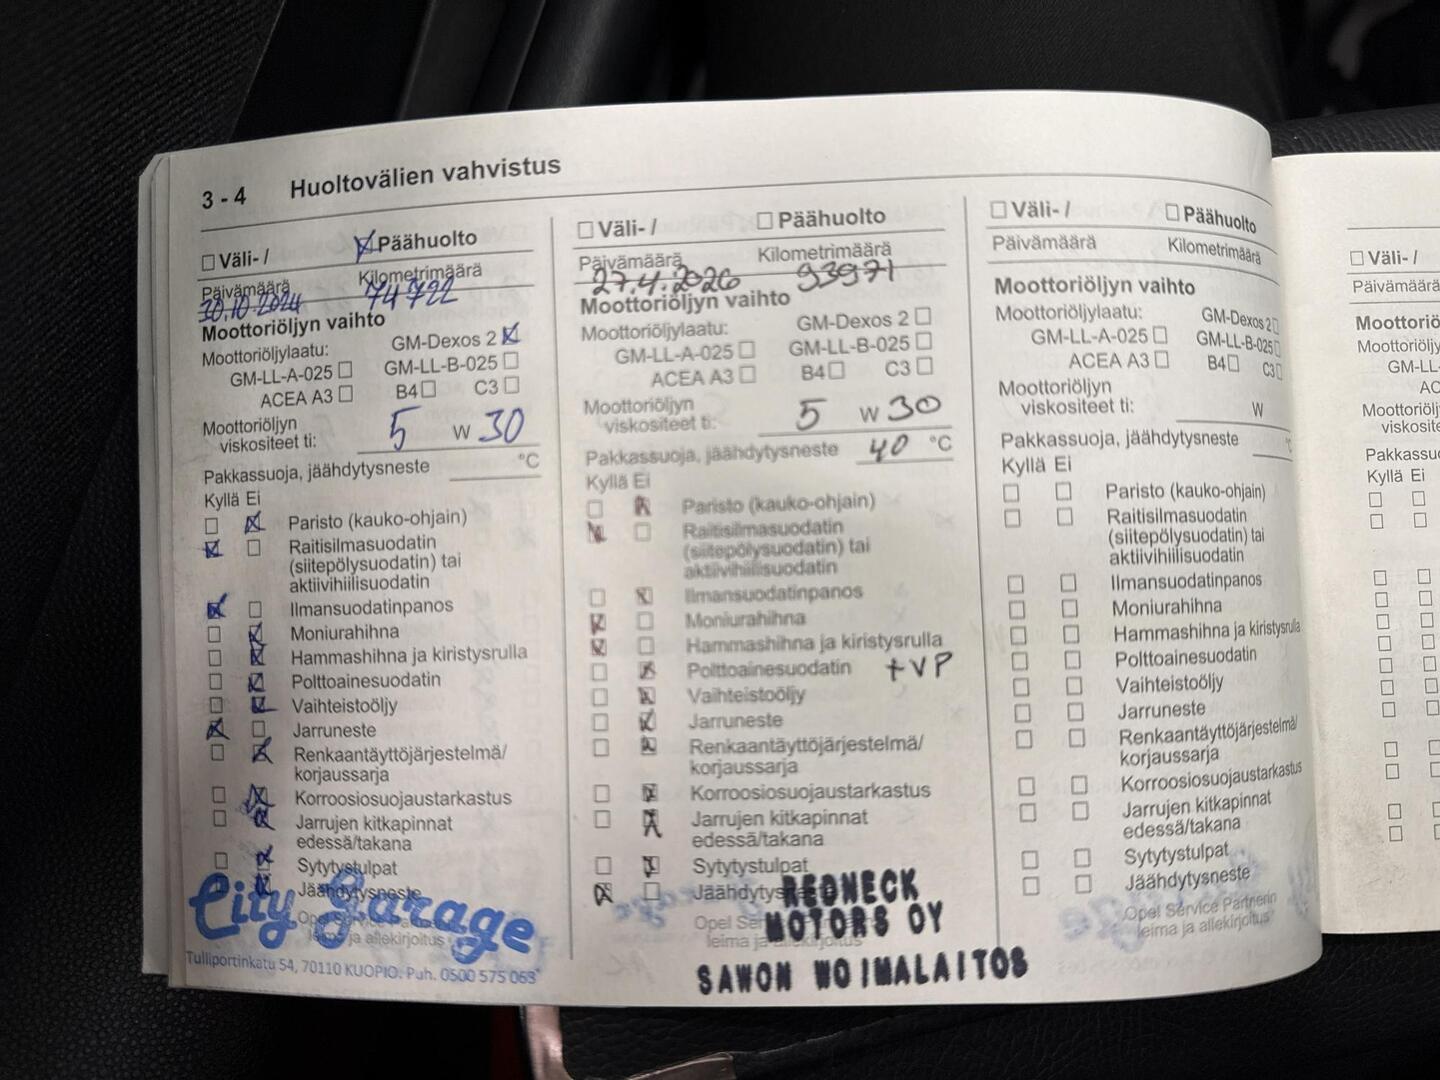 3 - 4 Huoltovälien vahvistus
Väli- / Päähuolto
Päivämäärä Kilometrimäärä
30.10.2024 74722
Moottoriöljyn vaihto
Moottoriöljylaatu: GM-Dexos 2
GM-LL-A-025 GM-LL-B-025
ACEA A3 B4 C3
Moottoriöljyn
viskositeet ti: 5 W 30
Pakkassuoja, jäähdytysneste °C
Kyllä Ei
Paristo (kauko-ohjain)
Raitisilmasuodatin
(siitepölysuodatin) tai
aktiivihiilisuodatin
Ilmansuodatinpanos
Moniurahihna
Hammashihna ja kiristysrulla
Polttoainesuodatin
Vaihteistoöljy
Jarruneste
Renkaantäyttöjärjestelmä/
korjaussarja
Korroosiosuojaustarkastus
Jarrujen kitkapinnat
edessä/takana
Sytytystulpat
Jäähdytysneste
City Garage
leima ja allekirjoitus
Tulliportinkatu 54, 70110 KUOPIO. Puh. 0500 575 063
Väli- / Päähuolto
Päivämäärä Kilometrimäärä
27.4.2026 93971
Moottoriöljyn vaihto
Moottoriöljylaatu: GM-Dexos 2
GM-LL-A-025 GM-LL-B-025
ACEA A3 B4 C3
Moottoriöljyn
viskositeet ti: 5 W 30
Pakkassuoja, jäähdytysneste 40 °C
Kyllä Ei
Paristo (kauko-ohjain)
Raitisilmasuodatin
(siitepölysuodatin) tai
aktiivihiilisuodatin
Ilmansuodatinpanos
Moniurahihna
Hammashihna ja kiristysrulla
Polttoainesuodatin +VP
Vaihteistoöljy
Jarruneste
Renkaantäyttöjärjestelmä/
korjaussarja
Korroosiosuojaustarkastus
Jarrujen kitkapinnat
edessä/takana
Sytytystulpat
REDNECK
MOTORS OY
Opel
leima ja allekirjoitus
SAWON WOIMALAITOS
Väli- / Päähuolto
Päivämäärä Kilometrimäärä
Moottoriöljyn vaihto
Moottoriöljylaatu: GM-Dexos 2
GM-LL-A-025 GM-LL-B-025
ACEA A3 B4 C3
Moottoriöljyn
viskositeet ti: W
Pakkassuoja, jäähdytysneste °C
Kyllä Ei
Paristo (kauko-ohjain)
Raitisilmasuodatin
(siitepölysuodatin) tai
aktiivihiilisuodatin
Ilmansuodatinpanos
Moniurahihna
Hammashihna ja kiristysrulla
Polttoainesuodatin
Vaihteistoöljy
Jarruneste
Renkaantäyttöjärjestelmä/
korjaussarja
Korroosiosuojaustarkastus
Jarrujen kitkapinnat
edessä/takana
Sytytystulpat
Jäähdytysneste
Opel Service Partnerin
leima ja allekirjoitus
Väli- /
Päivämäärä
Kyllä Ei